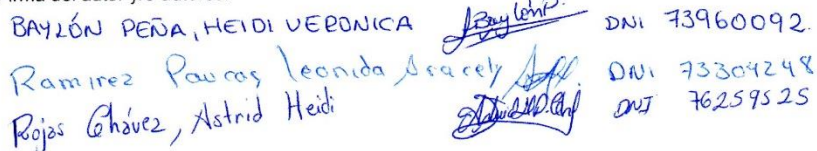 BAYLÓN PEÑA, HEIDI VERONICA BaylónP. DNI 73960092.
Ramirez Paucas Leonida Aracely DNI 73304248
Rojas Chávez, Astrid Heidi DNI 76259525